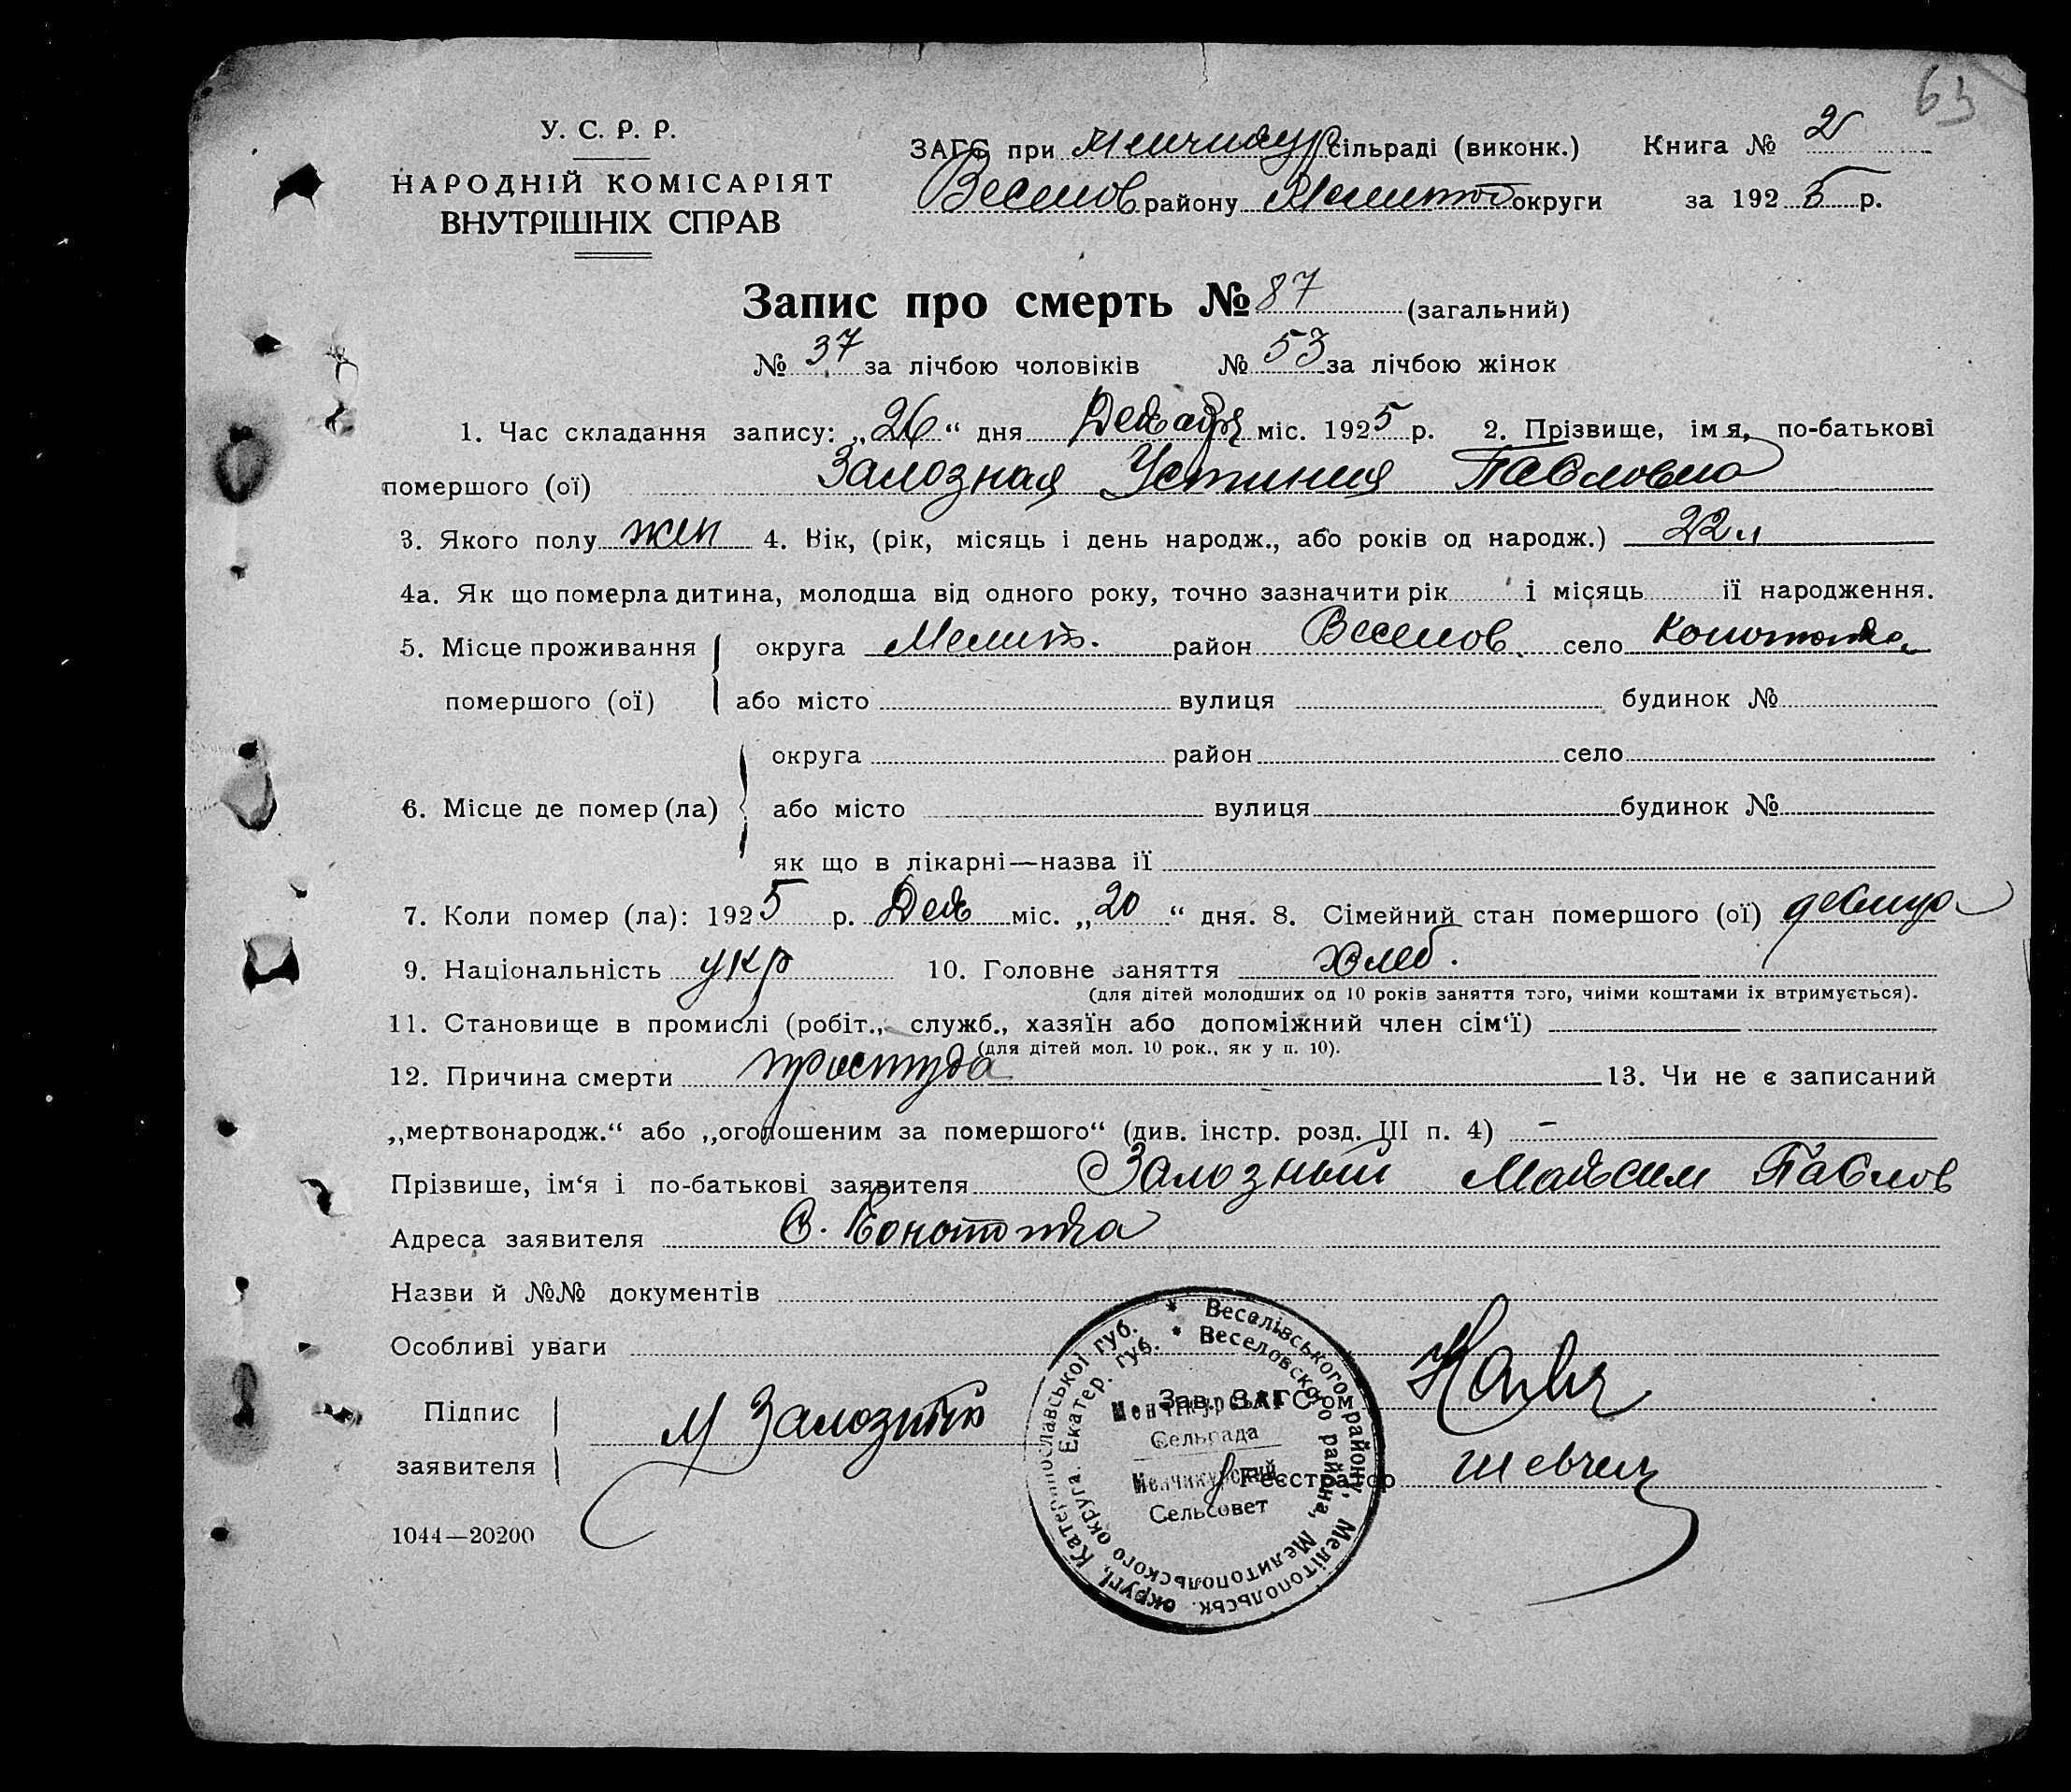 63
У. С. Р. Р.
НАРОДНІЙ КОМІСАРІЯТ
ВНУТРІШНІХ СПРАВ
ЗАГС при Менчикур сільраді (виконк.) Книга № 2
Веселов району Мелитоп округи за 1925 р.
Запис про смерть № 87 (загальний)
№ 37 за лічбою чоловіків № 53 за лічбою жінок
1. Час складання запису: „26“ дня Декабря міс. 1925 р. 2. Прізвище, імя, по-батькові
помершого (ої) Залозная Устиния Павловна
3. Якого полу жен 4. Вік, (рік, місяць і день народж., або років од народж.) 22 л
4а. Як що померла дитина, молодша від одного року, точно зазначити рік і місяць її народження.
5. Місце проживання округа Мелит. район Веселов. село Конотопка
помершого (ої) або місто вулиця будинок №
округа район село
6. Місце де помер (ла) або місто вулиця будинок №
як що в лікарні—назва її
7. Коли помер (ла): 1925 р. Дек міс. „20“ дня. 8. Сімейний стан помершого (ої) девица
9. Національність укр 10. Головне заняття хлеб.
(для дітей молодших од 10 років заняття того, чиїми коштами їх втримується).
11. Становище в промислі (робіт., служб., хазяїн або допоміжний член сім‘ї)
(для дітей мол. 10 рок., як у п. 10).
12. Причина смерти простуда 13. Чи не є записаний
„мертвонародж.“ або „оголошеним за помершого“ (див. інстр. розд. III п. 4) –
Прізвише, ім‘я і по-батькові заявителя Залозный Максим Павлов
Адреса заявителя С. Конотопка
Назви й №№ документів
Особливі уваги
Підпис
заявителя
М Залозний
Зав. ЗАГС‘ом
Реєстратор Шевчен
1044—20200
* Веселівського району, Мелітопольськ. округі, Катеринославської губ.
* Веселовского района, Мелитопольского округа. Екатер. губ.
Менчікурська
Сельрада
Менчикурский
Сельсовет